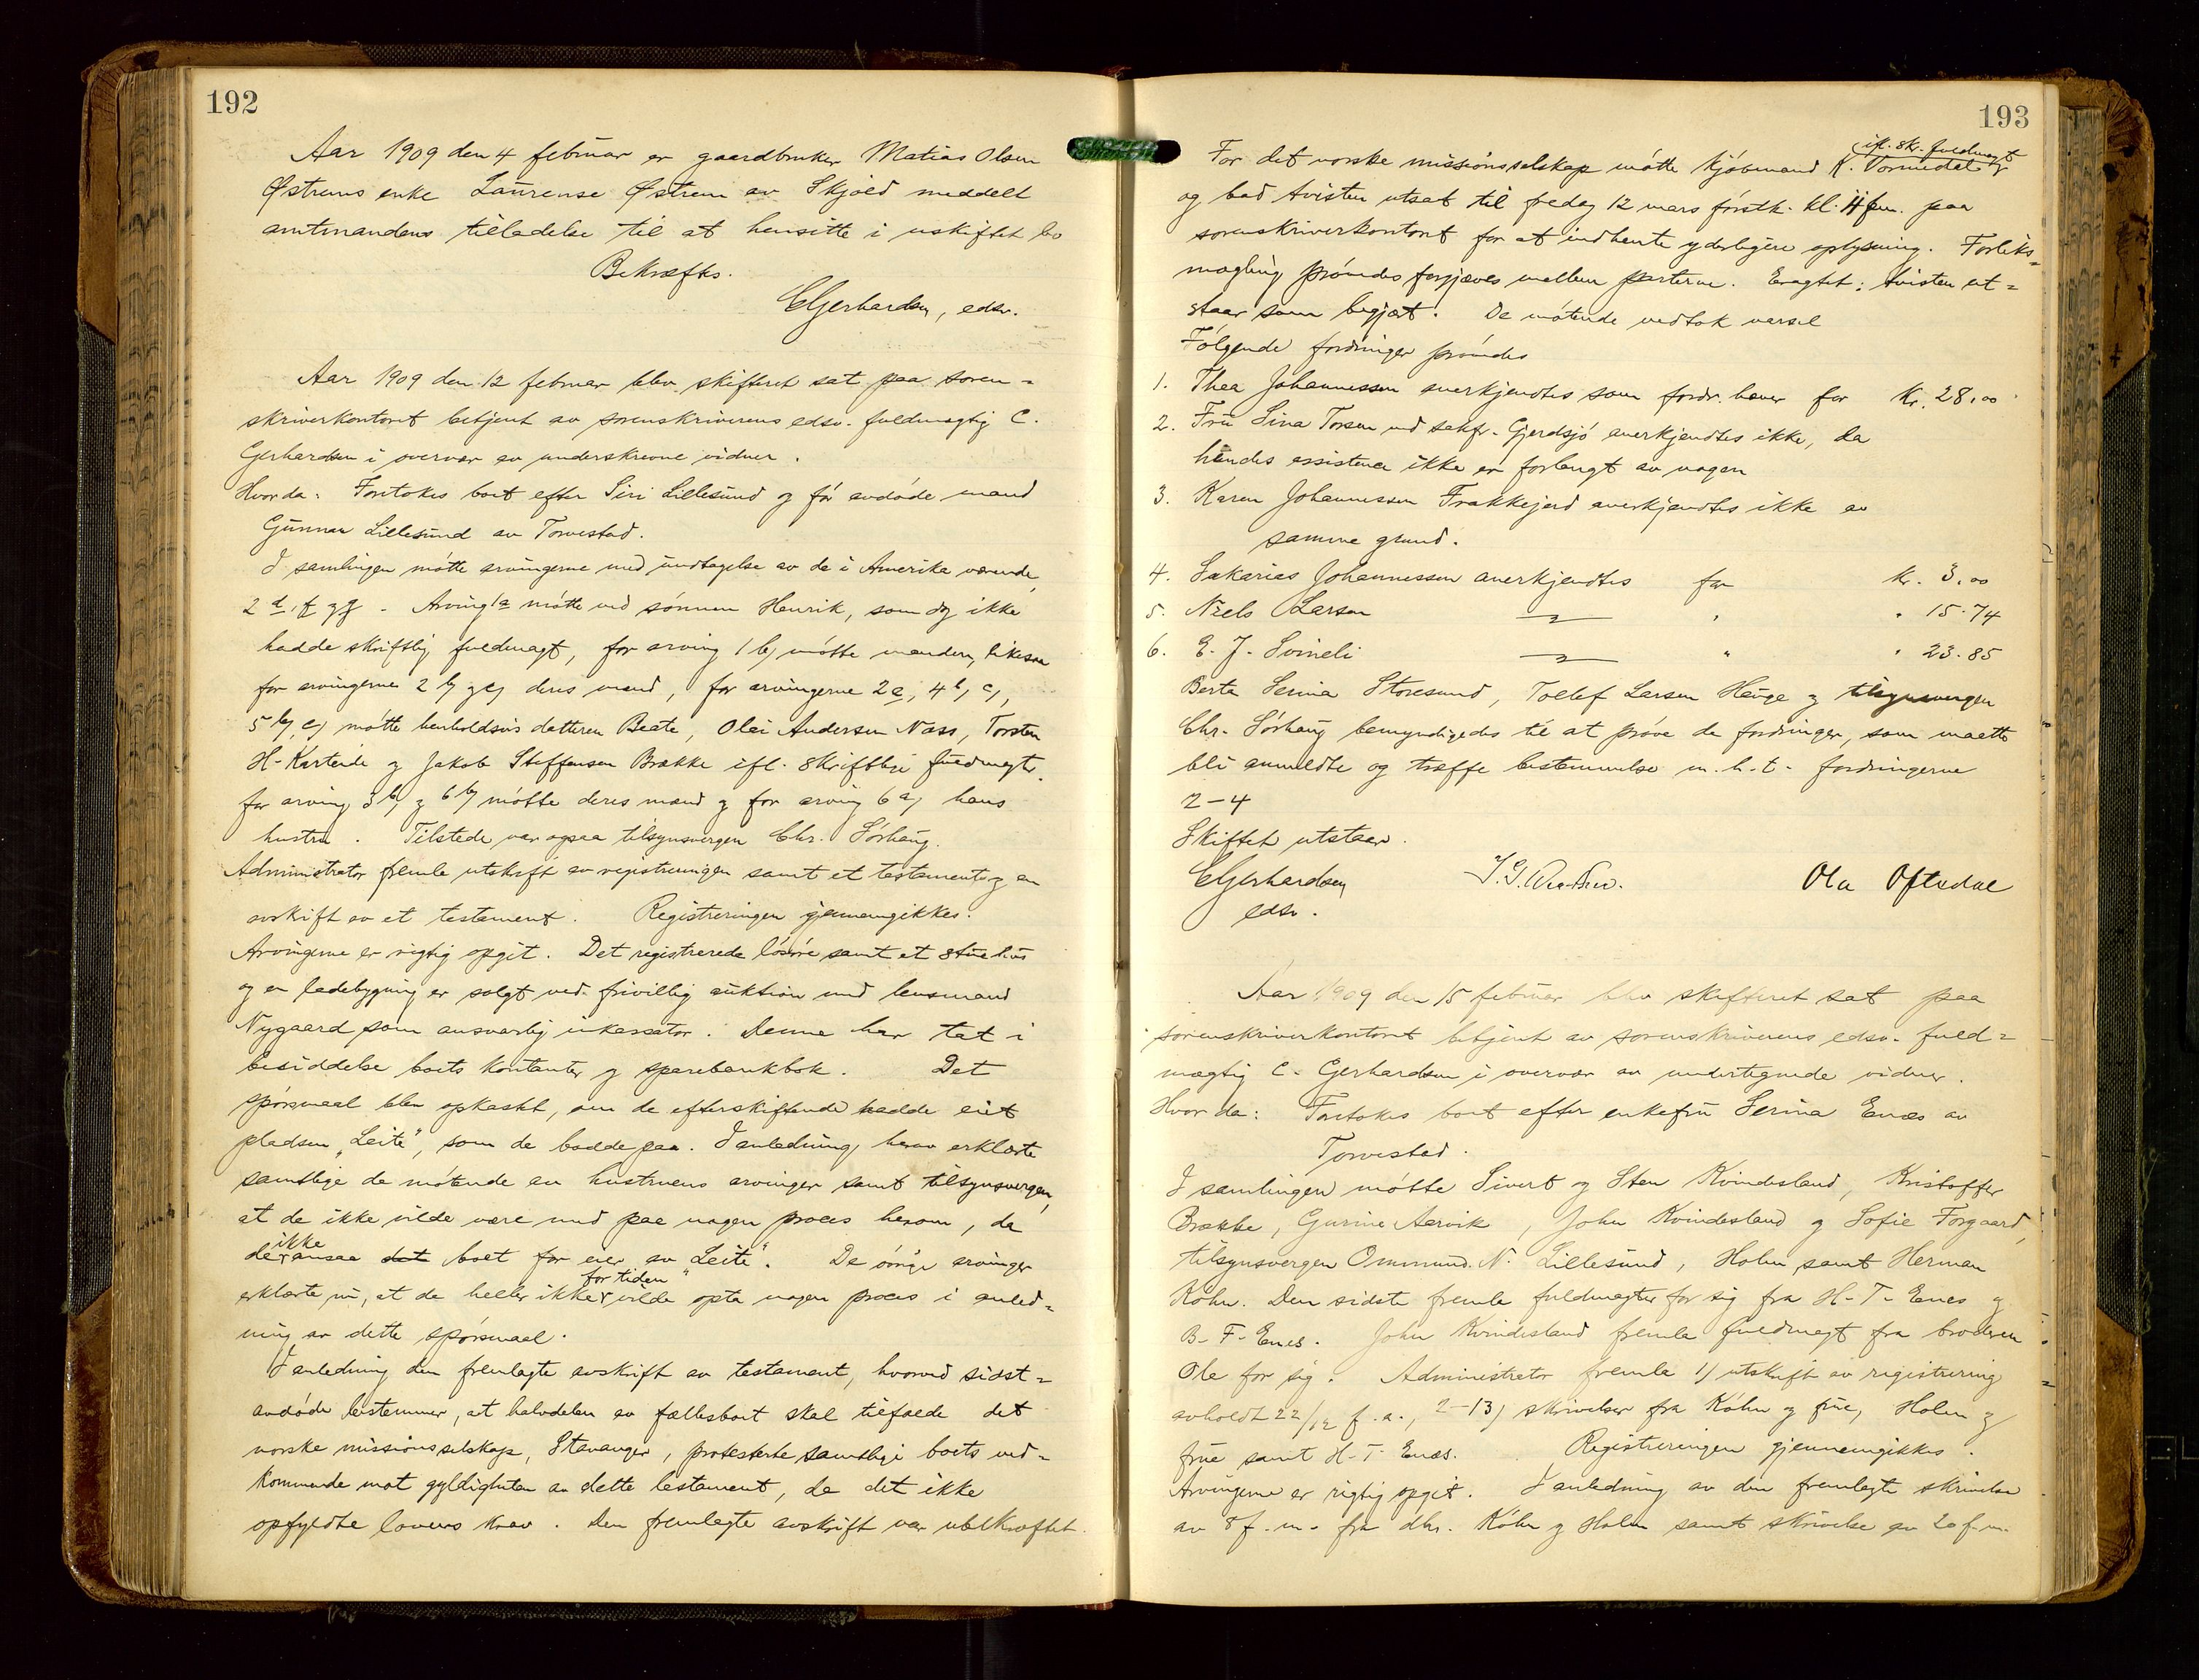 192
Aar 1909 den 4 februar er gaardbruker Matias Olsen
Østrems enke Laurense Østrem av Skjold meddelt
amtmandens tilladelse til at hensitte i uskiftet bo
Bekræftes.
CGerhardsen, edsv.
Aar 1909 den 12 februar blev skifteret sat paa soren-
skriverkontoret betjent av sorenskriverens edsv. fuldmægtig C.
Gerhardsen i overvær av underskrevne vidner.
Hvorda: Foretokes boet efter Siri Lillesund og før avdøde mand
Gunnar Lillesund av Torvestad.
I samlingen møtte arvingerne med undtagelse av de i Amerika værende
2 d, f og g. Arving 1a møtte ved sønnen Henrik, som dog ikke
hadde skriftlig fuldmagt, for arving 1 b) møtte manden, likesaa
for arvingerne 2 b) og c) deres mænd, for arvingerne 2 e, 4 b, c),
5 b), c) møtte henholdsvis datteren Beate, Olai Andersen Næss, Torsten
H. Karteide og Jakob Steffensen Brække ifl. skriftlige fuldmagter.
for arving 3 b) og 6 b) møtte deres mænd og for arving 6 a) hans
hustru. Tilstede var ogsaa tilsynsvergen Chr. Sørhaug.
Administrator fremla utskrift av registreringen samt et testament og en
avskrift av et testament. Registreringen gjennemgikkes.
Arvingerne er rigtig opgit. Det registrerede løsøre samt et stuehus
og en ladebygning er solgt ved frivillig auktion med lensmand
Nygaard som ansvarlig inkassator. Denne har tat i
besiddelse boets kontanter og sparebankbok. Det
spørsmaal blev opkastet, om de efterskiftende hadde eiet
pladsen "Leite", som de bodde paa. I anledning herav erklærte
samtlige de møtende av hustruens arvinger samt tilsynsvergen,
at de ikke vilde være med paa nogen proces herom, da
de ikke ansaa det boet for eier av "Leite". De øvrige arvinger
erklærte nu, at de heller ikke for tiden vilde opta nogen proces i anled-
ning av dette spørsmaal.
I anledning den fremlagte avskrift av testament, hvorved sidst-
avdøde bestemmer, at halvdelen av fællesboet skal tilfalde det
norske missionsselskap, Stavanger, protesterte samtlige boets ved-
kommende mot gyldigheten av dette testament, da det ikke
opfyldte lovens krav. Den fremlagte avskrift var ubekræftet.
193
For det norske missionsselskap møtte kjøbmand K. Vormedal ifl. skr. fuldmagt
og bad tvisten utsat til fredag 12 mars førstk. kl. 11 fm. paa
sorenskriverkontoret for at indhente yderligere oplysning. Forliks-
mægling prøvedes forgjæves mellem parterne. Eragtet: tvisten ut-
staar som begjært. De møtende vedtok varsel
Følgende fordringer prøvedes
1. Thea Johannessen anerkjendtes som fordr. haver for Kr. 28.00
2. Fru Sina Torsen ved sakf. Gjerdsjø anerkjendtes ikke, da
hendes assistence ikke er forlangt av nogen
3. Karen Johannessen Frakkejord anerkjendtes ikke av
samme grund.
4. Sakarias Johannessen anerkjendtes for kr. 3.00
5. Niels Larsen — " " 15.74
6. E. J. Svineli — " " 23.85
Berta Serina Storesund, Tollef Larsen Hauge og tilsynsvergen
Chr. Sørhaug bemyndigedes til at prøve de fordringer, som maatte
bli anmeldte og træffe bestemmelse m.h.t. fordringerne
2-4
Skiftet utstaar.
CGerhardsen
edsv.
Ola Oftedal
Aar 1909 den 15 februar blev skifteret sat paa
sorenskriverkontoret betjent av sorenskriverens edsv. fuld-
mægtig C. Gerhardsen i overvær av undertegnede vidner.
Hvor da: Foretokes boet efter enkefru Serina Enæs av
Torvestad.
I samlingen møtte Sivert og Sten Kvindesland, Kristoffer
Brække, Gurine Aarvik, John Kvindesland og Sofie Forgaard,
tilsynsvergen Ommund N. Lillesund, Holm samt Herman
Køhn. Den sidste fremla fuldmagter for sig fra H. T. Enes og
B. F. Enes. John Kvindesland fremla fuldmagt fra broderen
Ole for sig. Administrator fremla 1) utskrift av registrering
avholdt 22/12 f.a., 2-13) skrivelser fra Køhn og frue, Holm og
frue samt H. T. Enæs. Registreringen gjennemgikkes.
Arvingerne er rigtig opgit. I anledning av den fremlagte skrivelse
av 8 f.m. fra dhr. Køhn og Holm samt skrivelse av 20 f.m.